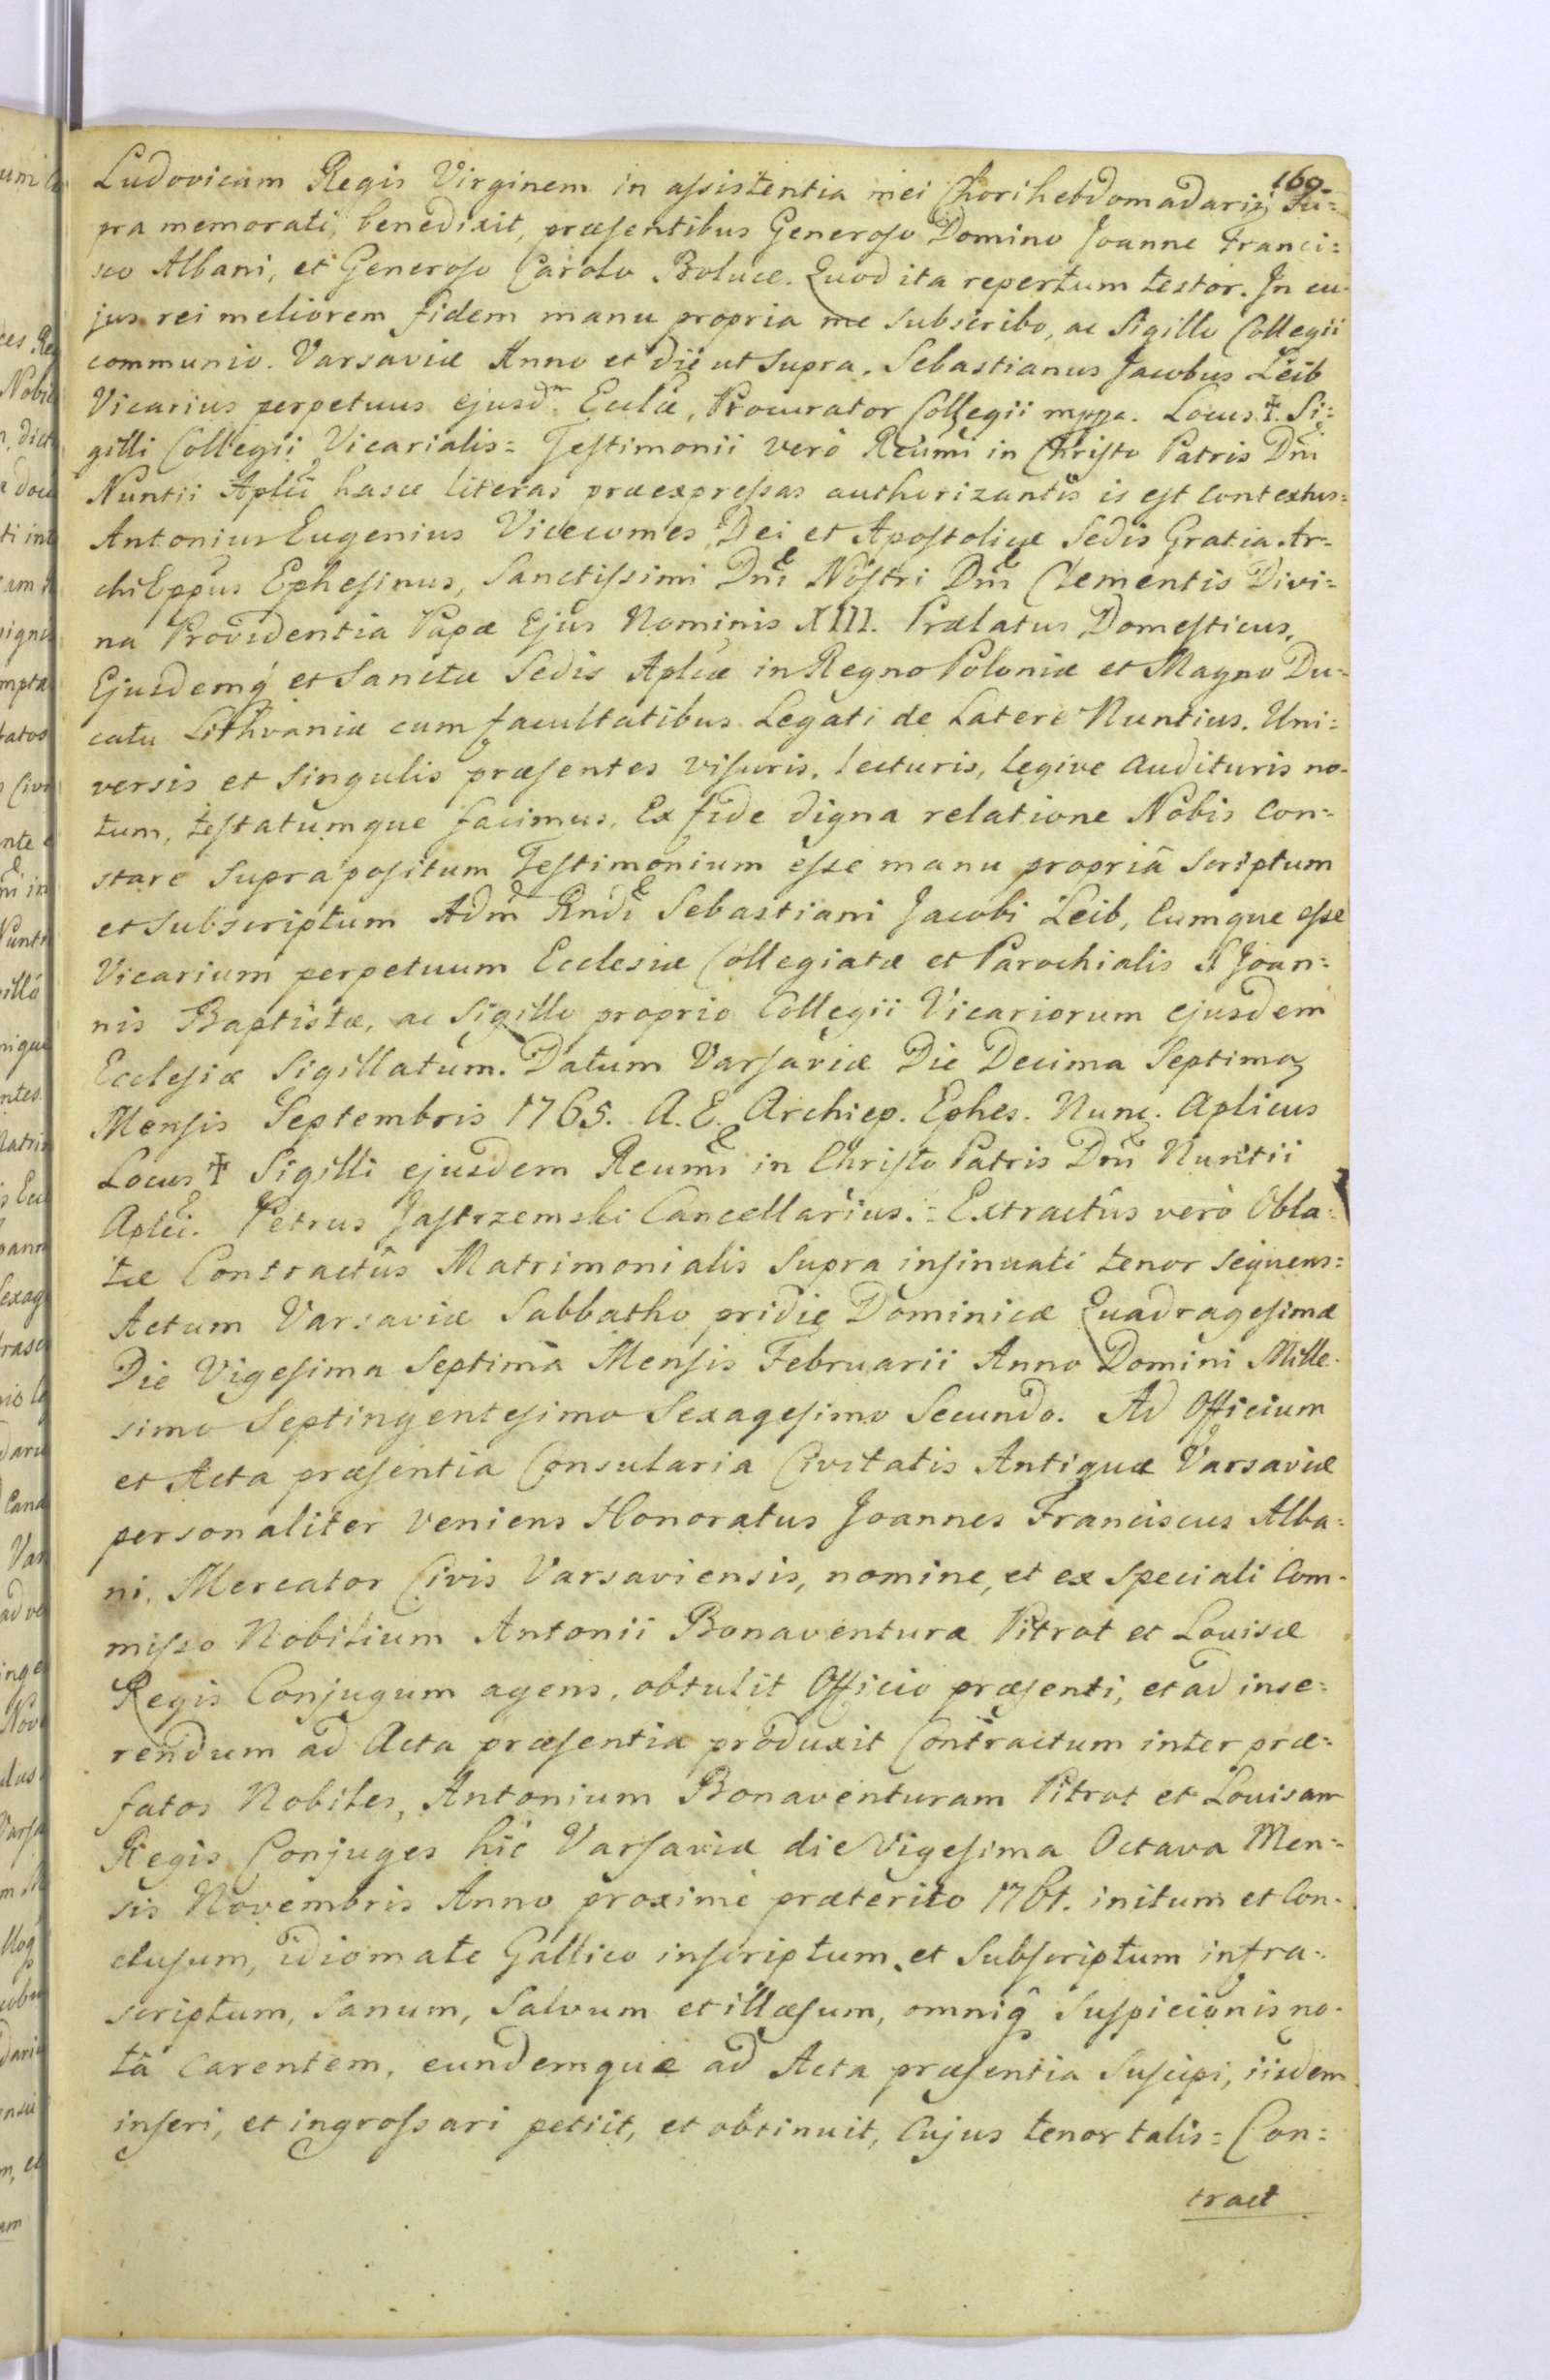 160.
Ludovicam Regis Virginem in assistentia mei Chori hebdomadarii Su=
pra memorati, benedixit, præsentibus Generoso Domino Joanne Franci=
sco Albani, et Generoso Carolo Boluce. Quod ita repertum testor. In cu-
jus rei meliorem fidem manu propria me subscribo, ac Sigillo Collegii
communio. Varsaviæ Anno et die ut Supra. Sebastianus Jacobus Leib
Vicarius perpetuus ejusdm Ecclæ, Procurator Collegii mppa. Locus ✝ Si=
gilli Collegii Vicarialis= Testimonii verò Reumi in Christo Patris Dni
Nuntii Aplci hasce literas præexpressas authorizantis is est contextus=
Antonius Eugenius Vicecomes, Dei et Apostolicæ Sedis Gratia Ar=
chiEppus Ephesinus, Sanctissimi Dni Nostri Dni Clementis Divi=
na Providentia Papæ Ejus Nominis XIII. Prælatus Domesticus,
Ejusdemq́ et Sanctæ Sedis Aplicæ in Regno Poloniæ et Magno Du=
catu Lithvaniæ cum facultatibus Legati de Latere Nuntius. Uni=
versis et Singulis præsentes visuris, lecturis, legive audituris no-
tum, testatumque facimus, Ex fide digna relatione Nobis Con=
stare Suprapositum Testimonium esse manu propriâ scriptum
et subscriptum Adm Rndi Sebastiani Jacobi Leib, Eumque esse
Vicarium perpetuum Ecclesiæ Collegiatæ et Parochialis S Joan=
nis Baptistæ, ac Sigillo proprio Collegii Vicariorum ejusdem
Ecclesiæ Sigillatum. Datum Varsaviæ Die Decima Septima
Mensis Septembris 1765. A. E. Archiep. Ephes. Nunc. Aplicus
Locus ✝ Sigilli ejusdem Reumi in Christo Patris Dni Nuntii
Aplci. Petrus Jastrzemski Cancellarius.= Extractûs verò Obla=
tæ Contractûs Matrimonialis Supra insinuati tenor sequens=
Actum Varsaviæ Sabbatho pridie Dominicæ Quadragesimæ
Die Vigesima Septima Mensis Februarii Anno Domini Mille-
simo Septingentesimo Sexagesimo Secundo. Ad Officium
et Acta præsentia Consularia Civitatis Antiquæ Varsaviæ
personaliter veniens Honoratus Joannes Franciscus Alba=
ni, Mercator Civis Varsaviensis, nomine, et ex speciali Com-
misso Nobilium Antonii Bonaventuræ Pitrot et Louisæ
Regis Conjugum agens, obtulit Officio præsenti, et ad inse=
rendum ad Acta præsentia produxit Contractum inter præ=
fatos Nobiles, Antonium Bonaventuram Pitrot et Louisam
Regis Conjuges hîc Varsaviæ die Vigesima Octava Men=
sis Novembris Anno proximè præterito 1761. initum et Con-
clusum, idiomate Gallico inscriptum, et Subscriptum infra-
scriptum, Sanum, Salvum et illæsum, omniq̃ Suspicionis no-
tâ Carentem, eundemque ad Acta præsentia Suscipi, iisdem
inseri, et ingrossari petiit, et obtinuit, Cujus tenor talis= Con=
tract